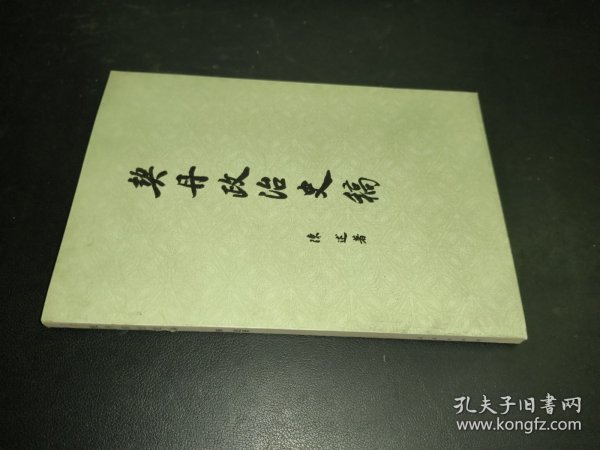 契丹政治史稿
陈述著
孔夫子旧書网
www.kongfz.com